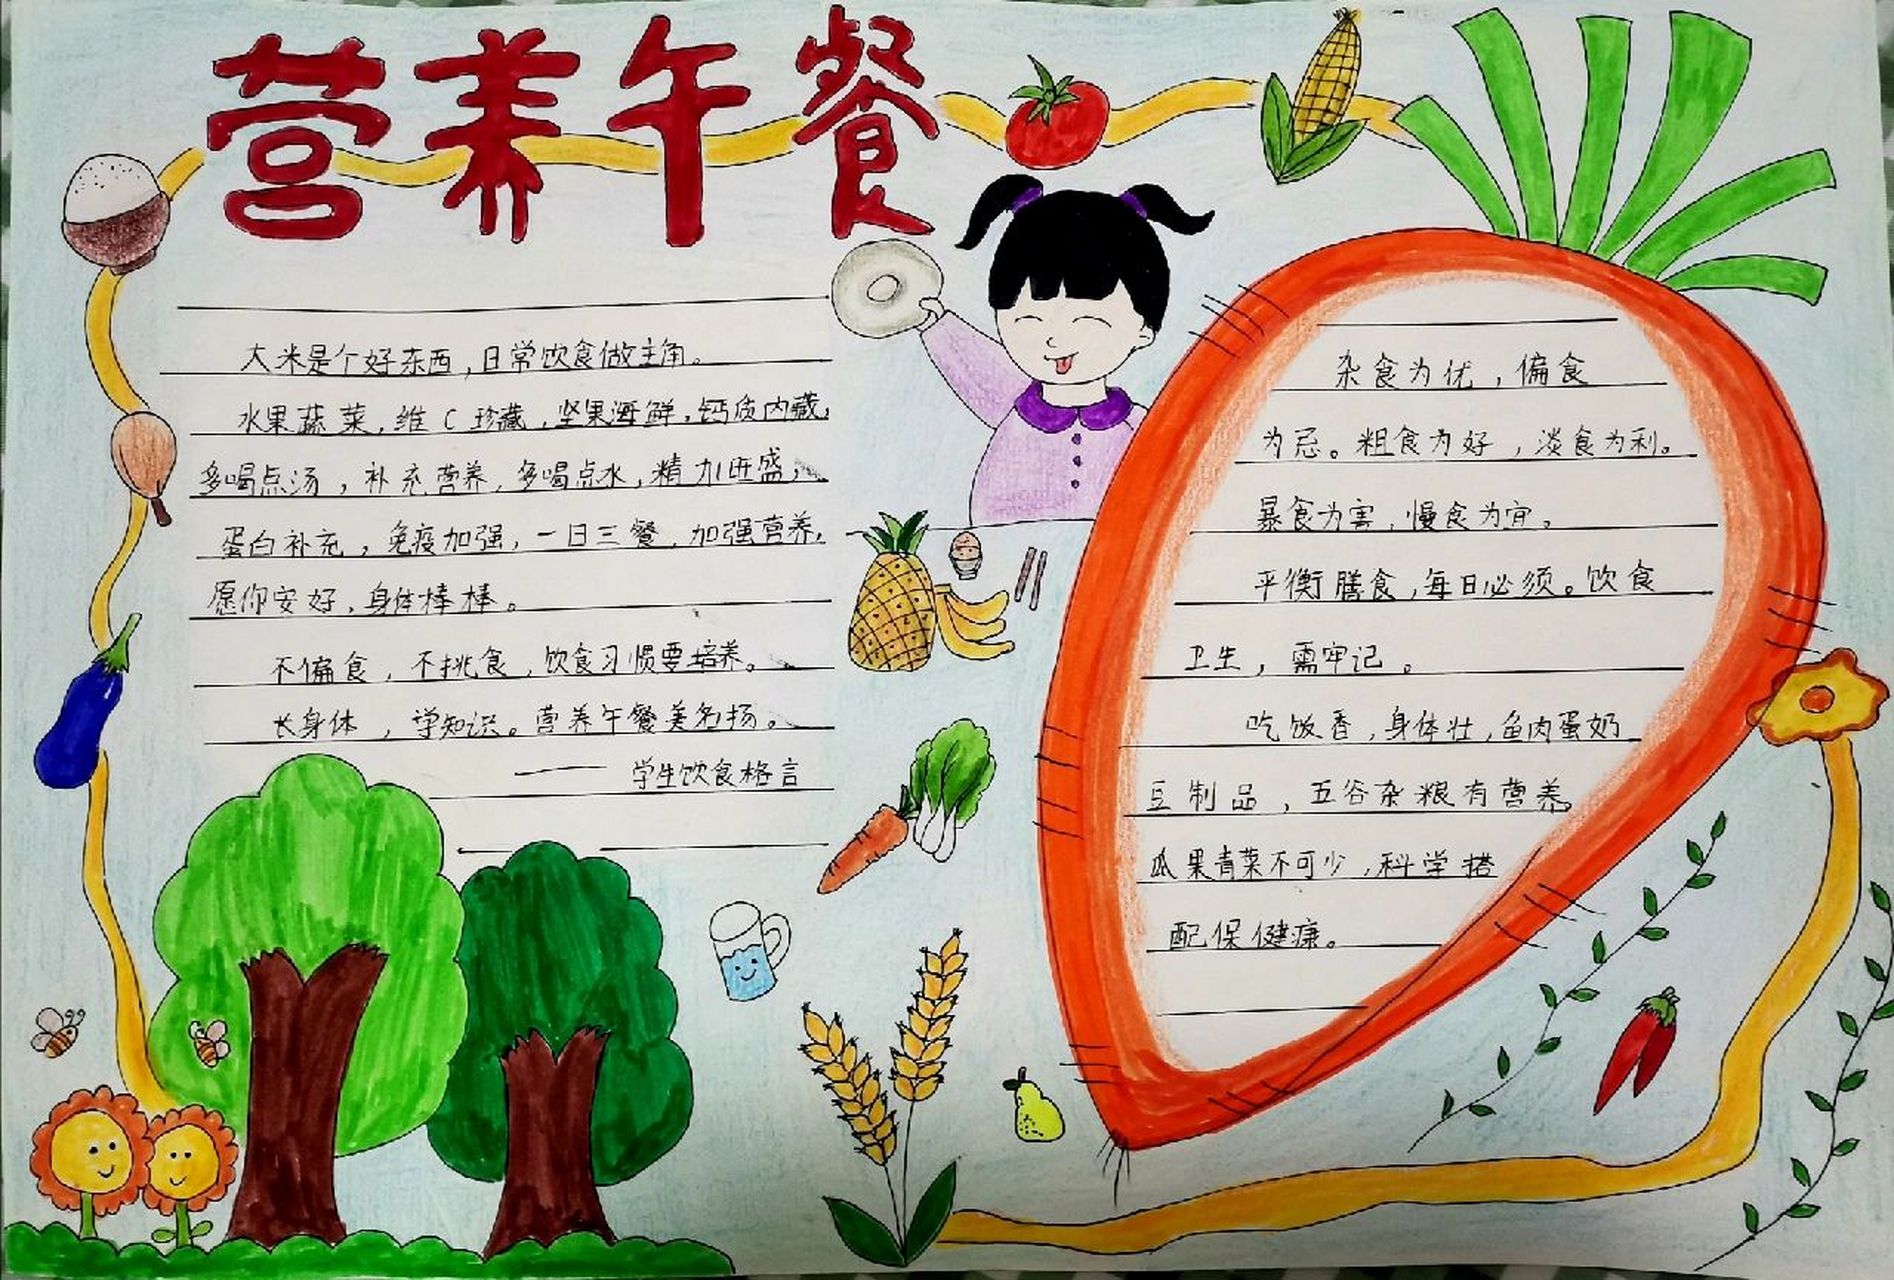 营养午餐
大米是个好东西，日常饮食做主角。
水果蔬菜，维C珍藏，坚果海鲜，钙质内藏，
多喝点汤，补充营养，多喝点水，精力旺盛，
蛋白补充，免疫加强，一日三餐，加强营养，
愿你安好，身体棒棒。
不偏食，不挑食，饮食习惯要培养。
长身体，学知识。营养午餐美名扬。
——学生饮食格言
杂食为优，偏食
为忌。粗食为好，淡食为利。
暴食为害，慢食为宜。
平衡膳食，每日必须。饮食
卫生，需牢记。
吃饭香，身体壮，鱼肉蛋奶
豆制品，五谷杂粮有营养，
瓜果青菜不可少，科学搭
配保健康。